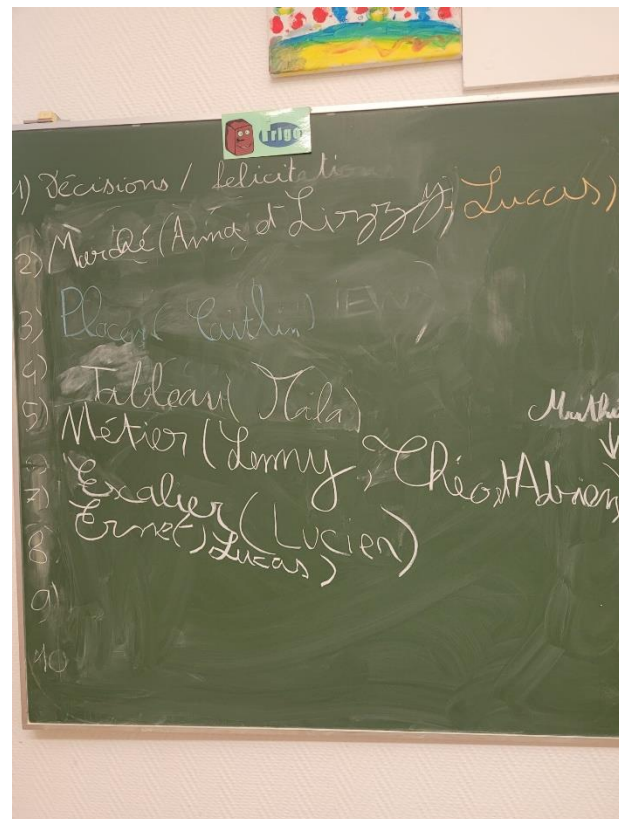 Frigo
1) Décisions / felicitations
2) Marché (Anna et Lizzy, Luccas)
3) Places (Caitlin)
4)
5) Tableau (Mila)
Métier (Lenny, Théo et Adrien)
Mathi
7) Escalier (Lucien)
8) Lucas)
9)
10